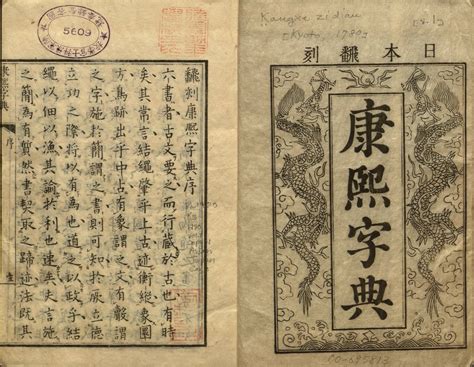 日本翻刻
康熙字典
Kangxi zidian
5609
翻刻康熙字典序
六書者古文要之而行藏於古也有時
矣其常言結繩肇乎上古迹衡縱象圖
方鳥跡出乎中古有象謂之文有聲謂
之字施於簡謂之書則可知於立德
立功之際將以有為也道之以政乎結
繩以佃以漁其諭於利也速矣史言施
之簡為有然書契取之迹法既其
康熙字典 序